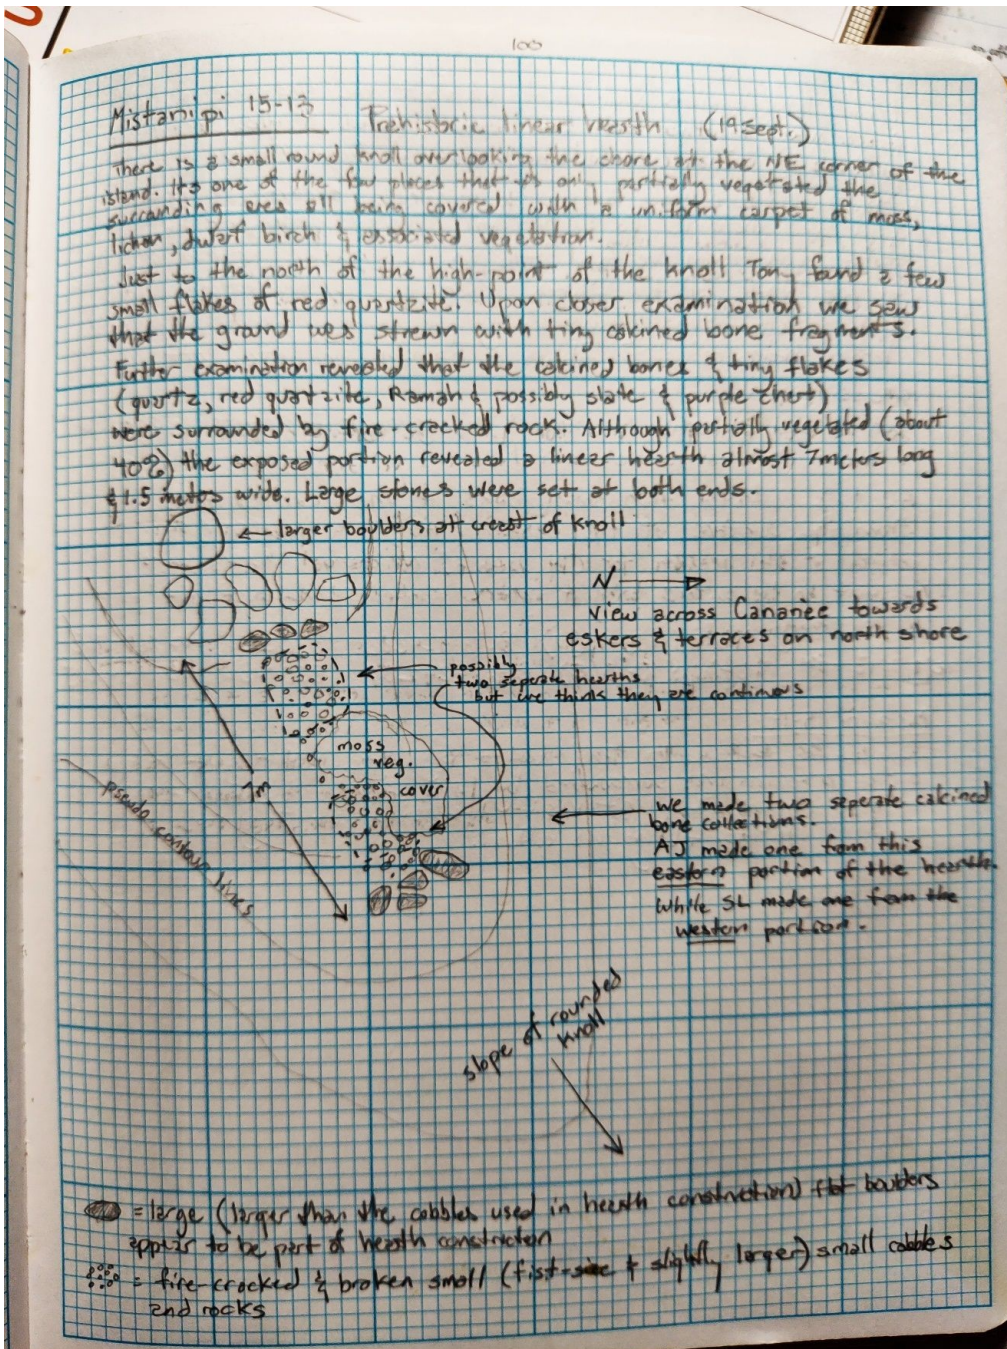 100
Mistanipi 15-13 Prehistoric linear hearth (19 Sept.)
There is a small round knoll overlooking the shore at the NE corner of the
island. Its one of the few places that is only partially vegetated the
surrounding area all being covered with a uniform carpet of moss,
lichen, dwarf birch & associated vegetation.
Just to the north of the high-point of the knoll Tony found a few
small flakes of red quartzite. Upon closer examination we saw
that the ground was strewn with tiny calcined bone fragments.
Further examination revealed that the calcined bones & tiny flakes
(quartz, red quartzite, Ramah & possibly slate & purple chert)
were surrounded by fire-cracked rock. Although partially vegetated (about
40%) the exposed portion revealed a linear hearth almost 7 meters long
& 1.5 meters wide. Large stones were set at both ends.
← larger boulders at crest of knoll
N →
View across Cananée towards
eskers & terraces on north shore
possibly
two seperate hearths
but we think they are continuous
moss
veg.
cover
7m
pseudo contour lines
we made two seperate calcined
bone collections.
AJ made one from this
eastern portion of the hearth.
While SL made one from the
western portion.
slope of rounded
knoll
= large (larger than the cobbles used in hearth construction) flat boulders
appear to be part of hearth construction
= fire-cracked & broken small (fist-size & slightly larger) small cobbles
and rocks